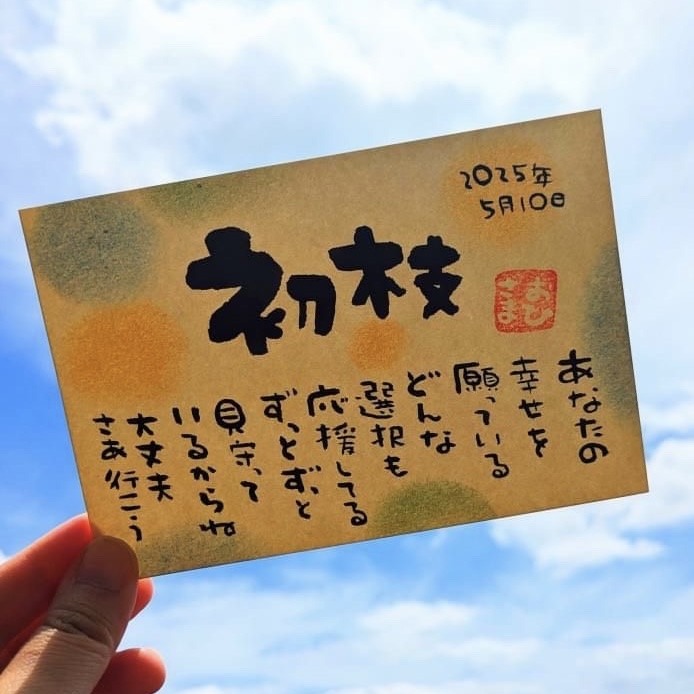 2025年
5月10日
初枝
おび
さま
あなたの
幸せを
願っている
どんな
選択も
応援してる
ずっとずっと
見守って
いるからね
大丈夫
さあ行こう